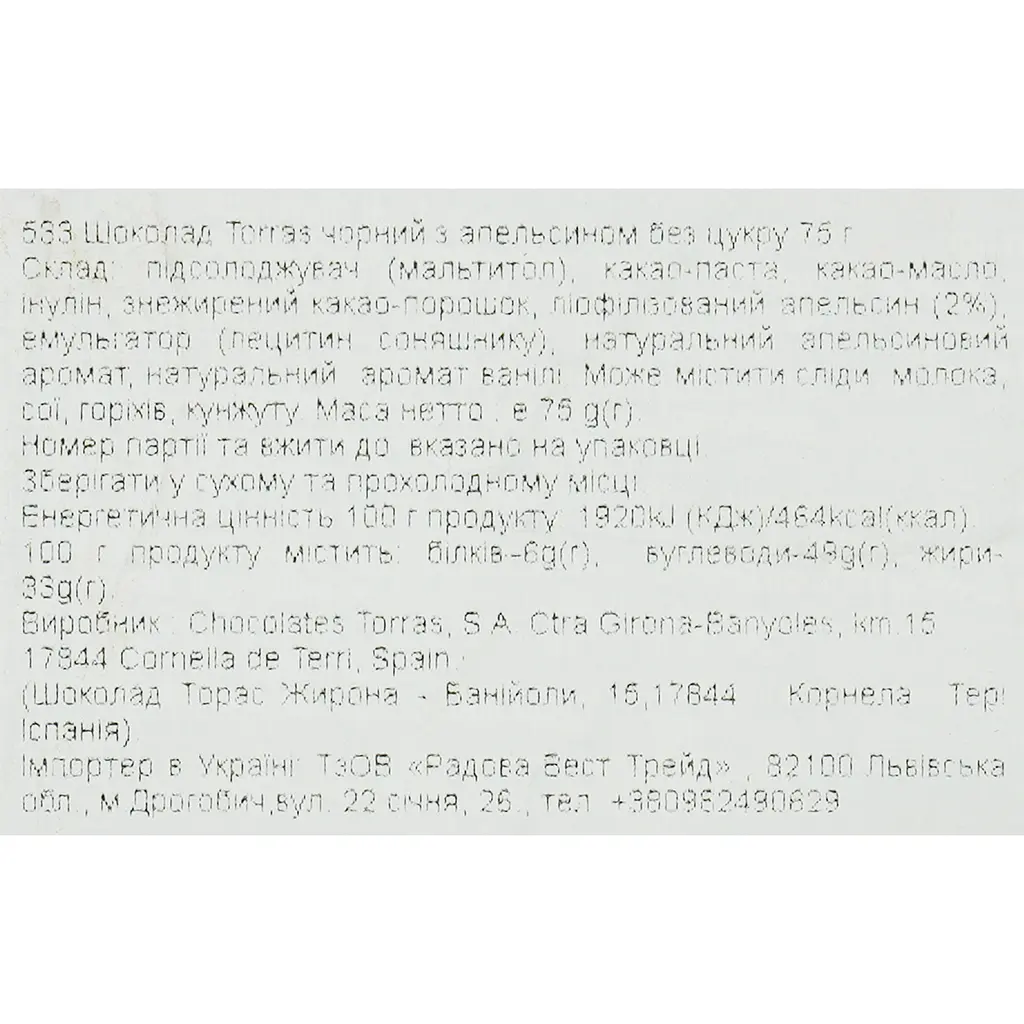 533 Шоколад Torras чорний з апельсином без цукру 75 г
Склад: підсолоджувач (мальтитол), какао-паста, какао-масло,
інулін, знежирений какао-порошок, ліофілізований апельсин (2%),
емульгатор (лецитин соняшнику), натуральний апельсиновий
аромат, натуральний аромат ванілі. Може містити сліди молока,
сої, горіхів, кунжуту. Маса нетто : е 75 g(г).
Номер партії та вжити до: вказано на упаковці.
Зберігати у сухому та прохолодному місці.
Енергетична цінність 100 г продукту: 1920kJ (КДж)/464kcal(ккал).
100 г продукту містить: білків-6g(г), вуглеводи-49g(г), жири-
(г).
Виробник : Chocolates Torras, S.A. Ctra Girona-Banyoles, km.15
17844 Cornella de Terri, Spain.
(Шоколад Торас Жирона - Банійоли, 15,17844 Корнела Тері
Іспанія).
Імпортер в Україні: ТзОВ «Радова Бест Трейд» , 82100 Львівська
обл., м.Дрогобич,вул. 22 січня, 26., тел.